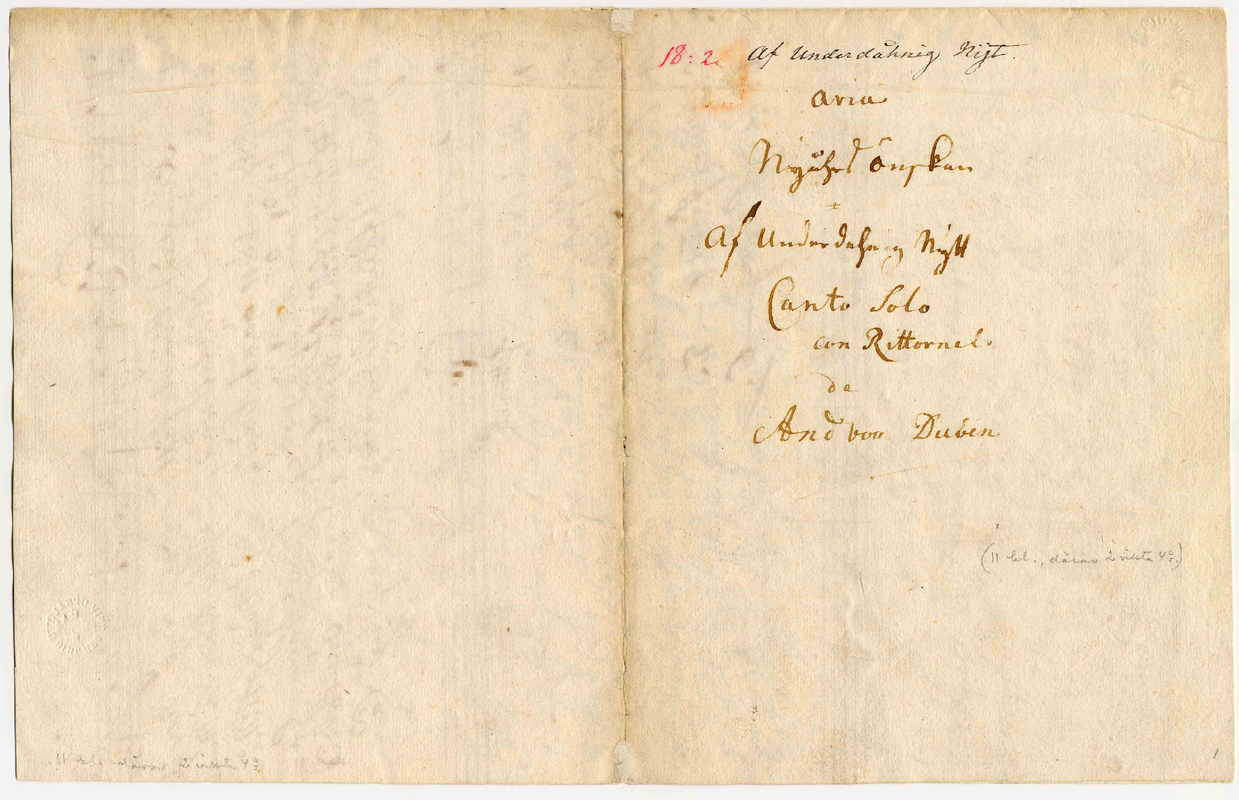 18:2. Af Underdåhnig Nijt.
Aria
Nyåhrs önskan
Af Underdehnig Nijtt
Canto Solo
con Rittornel.
da
And von Duben
(11 bl., därav 2 vikta 4:o)
1
11 bl. därav 2 vikta 4:o